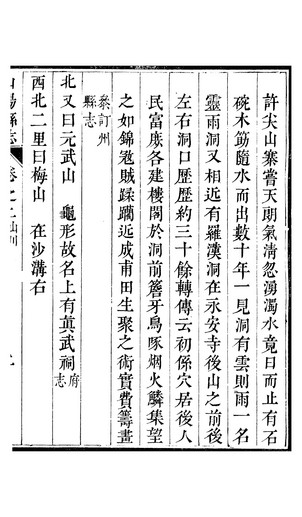 許尖山寨嘗天朗氣清忽湧濁水竟日而止有石
碗木筯隨水而出數十年一見洞有雲則雨一名
靈雨洞又相近有羅漢洞在永安寺後山之前後
左右洞口歷歷約三十餘轉傳云初係穴居後人
民富庶各建樓閣於洞前簷牙鳥啄烟火鱗集望
之如錦寇賊蹂躪近成甫田生聚之術實費籌畫
叅訂州
縣志
北又曰元武山　龜形故名上有真武祠府志
西北二里曰梅山　在沙溝右